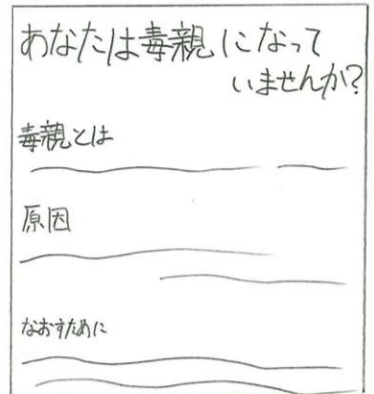 あなたは毒親になって
いませんか?
毒親とは
原因
なおすために